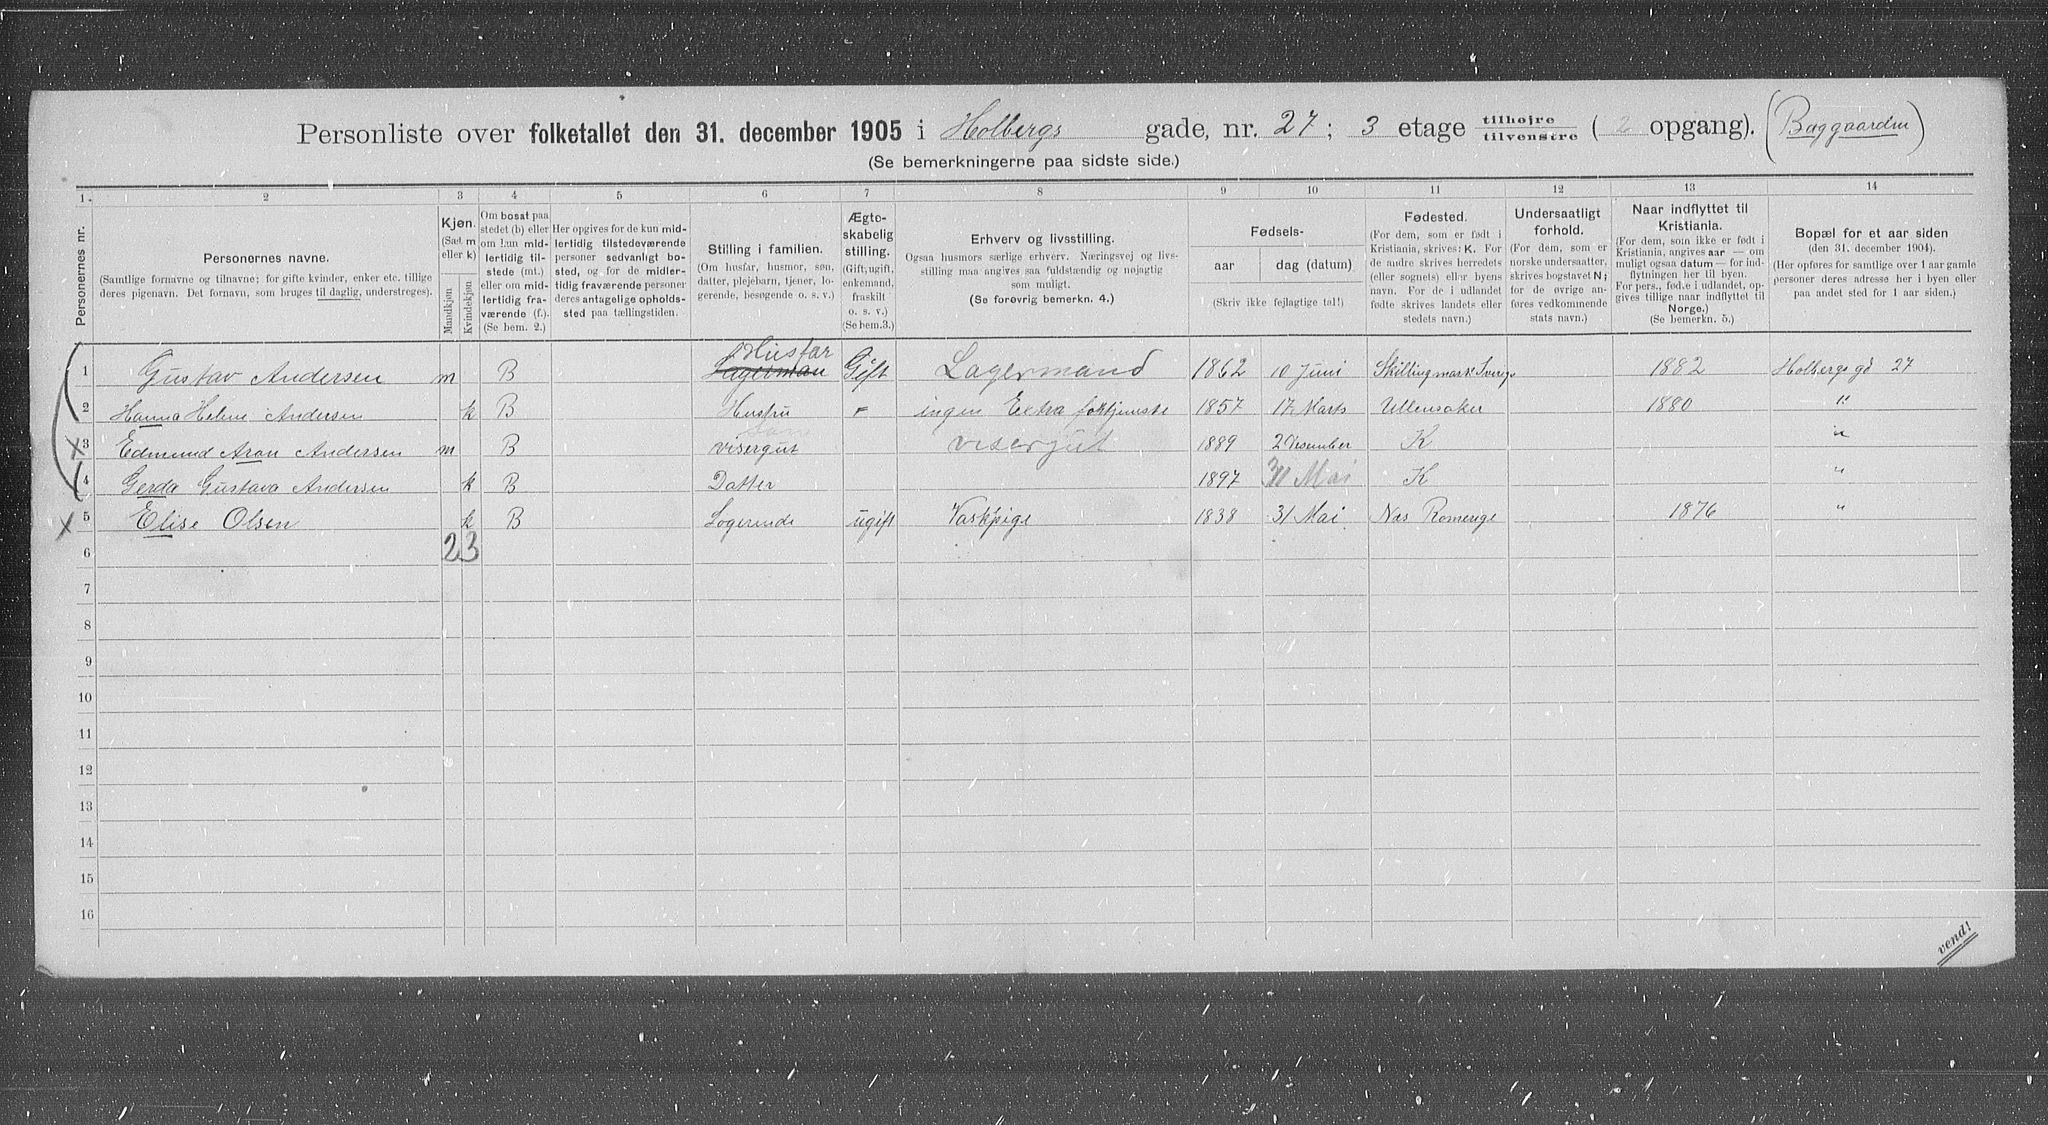 Personliste over folketallet den 31. december 1905 i Holbergs gade, nr. 27; 3 etage tilhøjre tilvenstre (2 opgang). (Baggaarden)
(Se bemerkningerne paa sidste side.)
1. 2 3 4 5 6 7 8 9 10 11 12 13 14
Personernes nr.
Personernes navne.
(Samtlige fornavne og tilnavne; for gifte kvinder, enker etc. tillige deres pigenavn. Det fornavn, som bruges til daglig, understreges).
Kjøn.
(Sæt m eller k)
Mandkjøn
Kvindekjøn
Om bosat paa stedet (b) eller om kun midlertidig tilstede (mt.) eller om midlertidig fraværende (f.). (Se bem. 2.)
Her opgives for de kun midlertidig tilstedeværende personer sedvanlig bosted, og for de midlertidig fraværende personer deres antagelige opholdssted paa tællingstiden.
Stilling i familien.
(Om husfar, husmor, søn, datter, plejebarn, tjener, logerende, besøgende o. s. v.)
Ægteskabelig stilling.
(Gift, ugift, enkemand, fraskilt o. s. v.) (Se bem.3.)
Erhverv og livsstilling.
Ogsaa husmors særlige erhverv. Næringsvej og livsstilling maa angives saa fuldstændig og nøjagtig som muligt.
(Se forøvrig bemerkn. 4.)
Fødsels-
aar
dag (datum)
(Skriv ikke fejlagtige tal!)
Fødested.
(For dem, som er født i Kristiania, skrives: K. For de andre skrives herredets (eller sognets) eller byens navn. For de i udlandet fødte skrives landets eller stedets navn.)
Undersaatligt forhold.
(For dem, som er norske undersaatter, skrives bogstavet N; for de øvrige anføres vedkommende stats navn.)
Naar indflyttet til Kristiania.
(For dem, som ikke er født i Kristiania, angives aar — om muligt ogsaa datum — for indflytningen her til byen. For pers., føde i udlandet, opgives tillige naar indflyttet til Norge.)
(Se bemerkn. 5.)
Bopæl for et aar siden
(den 31. december 1904).
(Her opføres for samtlige over 1 aar gamle personer deres adresse her i byen eller paa andet sted for 1 aar siden.)
1 Gustav Andersen m B Lagerman Husfar Gift Lagermand 1862 10 Juni Skillingmark Sverge 1882 Holbergs gd 27
2 Hanna Helene Andersen k B Hustru " ingen Extra fortjenste 1857 17 Marts Ullensaker 1880 "
x 3 Edmund Aron Andersen m B visergut Søn visergut 1889 2 Desember K "
4 Gerda Gustava Andersen k B Datter 1897 31 Mai K "
x 5 Elise Olsen k B Logerende ugift Vaskpige 1838 31 Mai Nas Romerige 1876 "
6 2 3
7
8
9
10
11
12
13
14
15
16
vend!